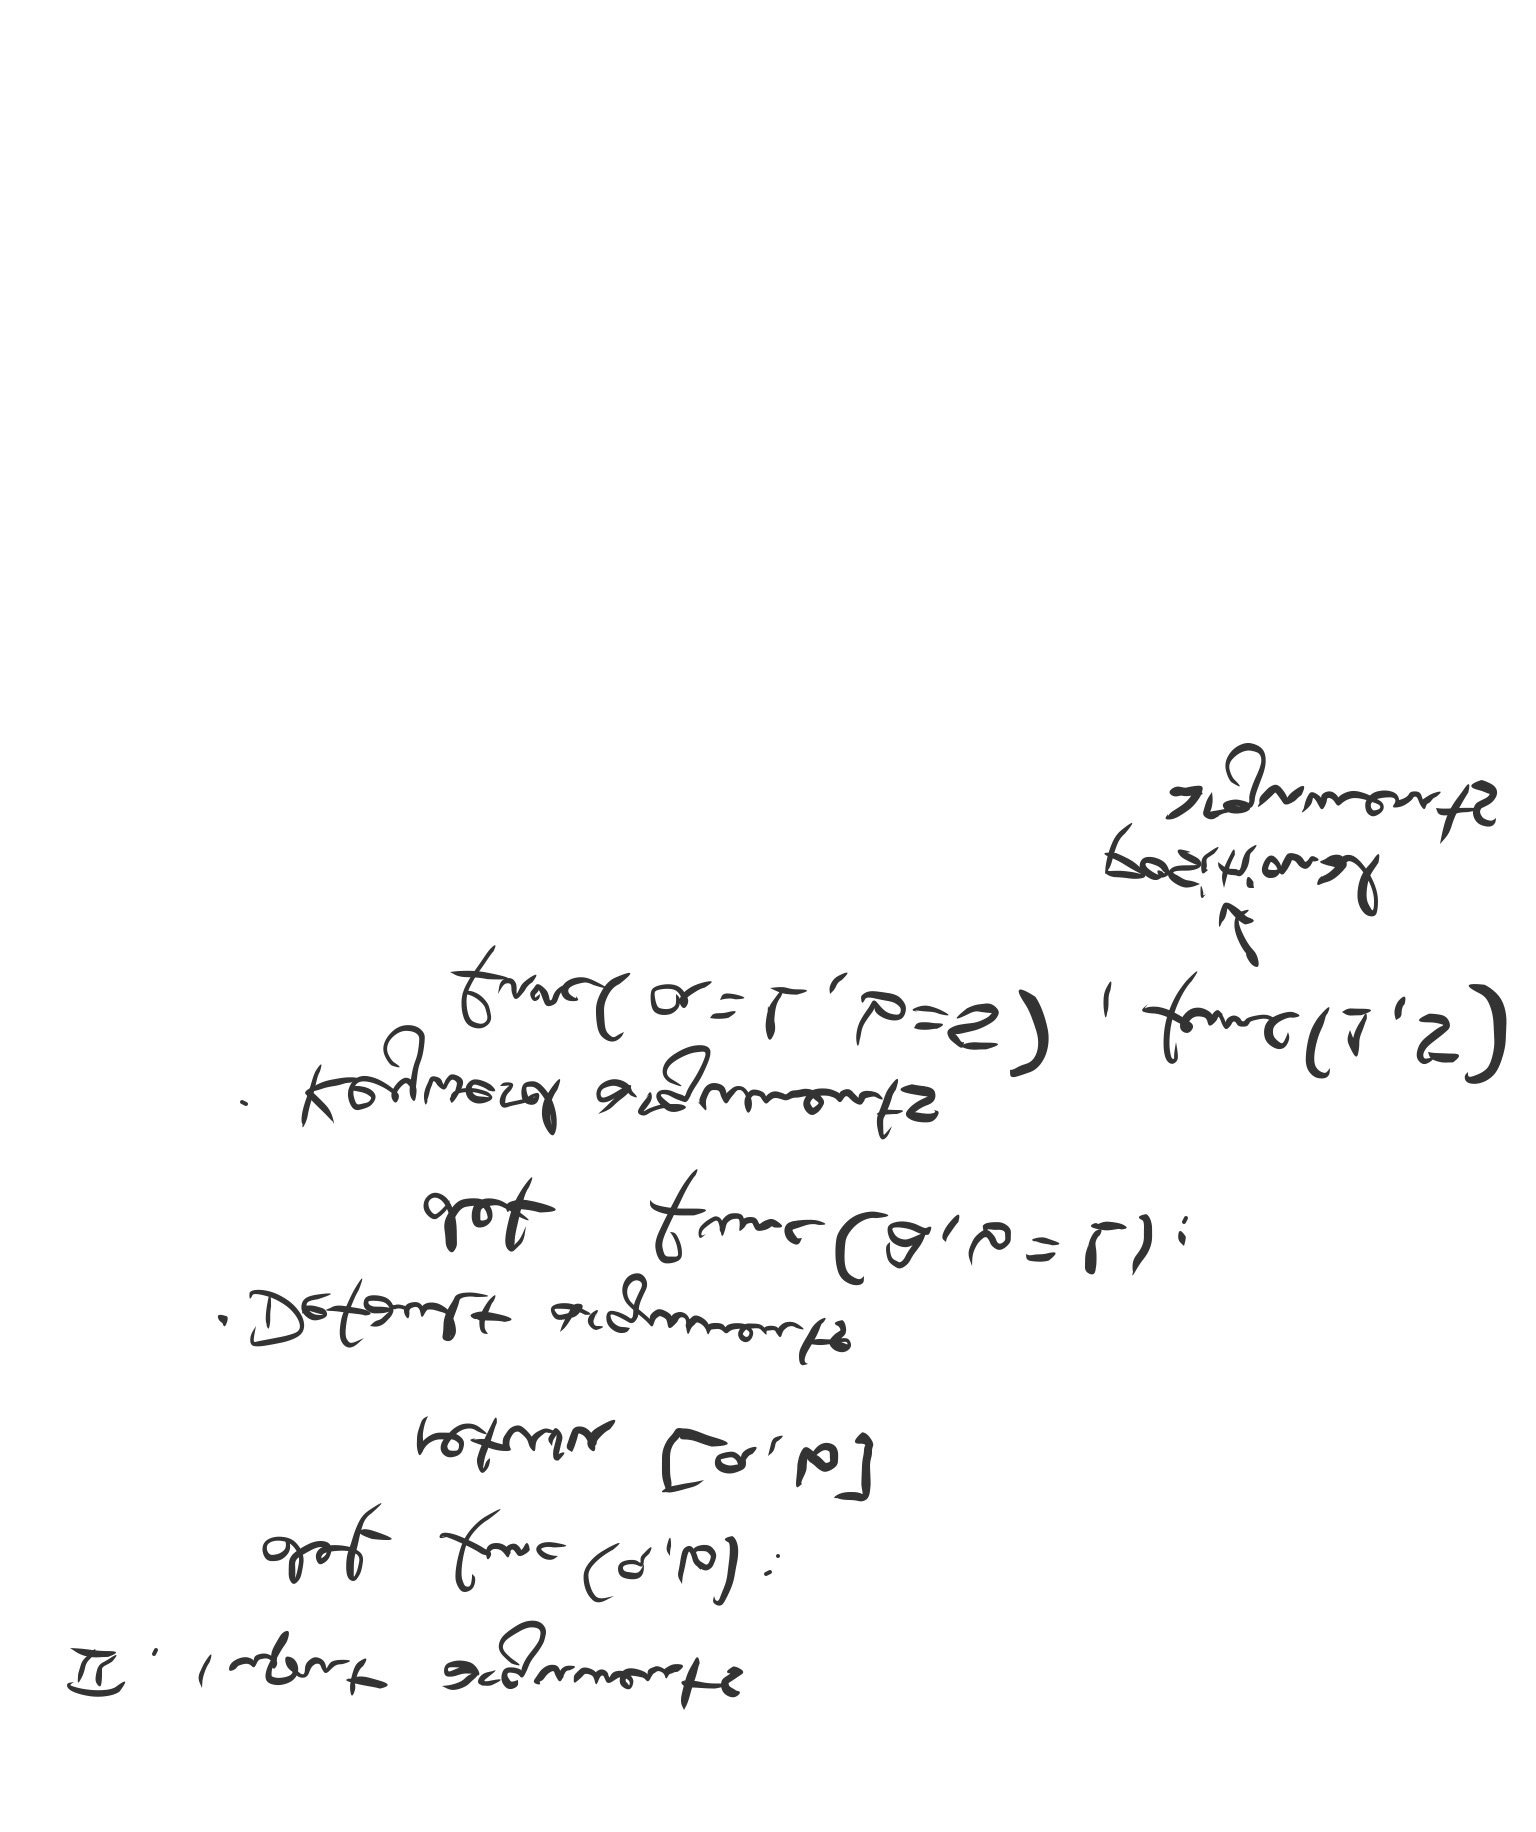 II. Input arguments
def func(a,b):
return [a,b]
· Default arguments
def func(a,b=1):
· Keyword arguments
func(a=1,b=5), func(1,5)
↙
positional
arguments